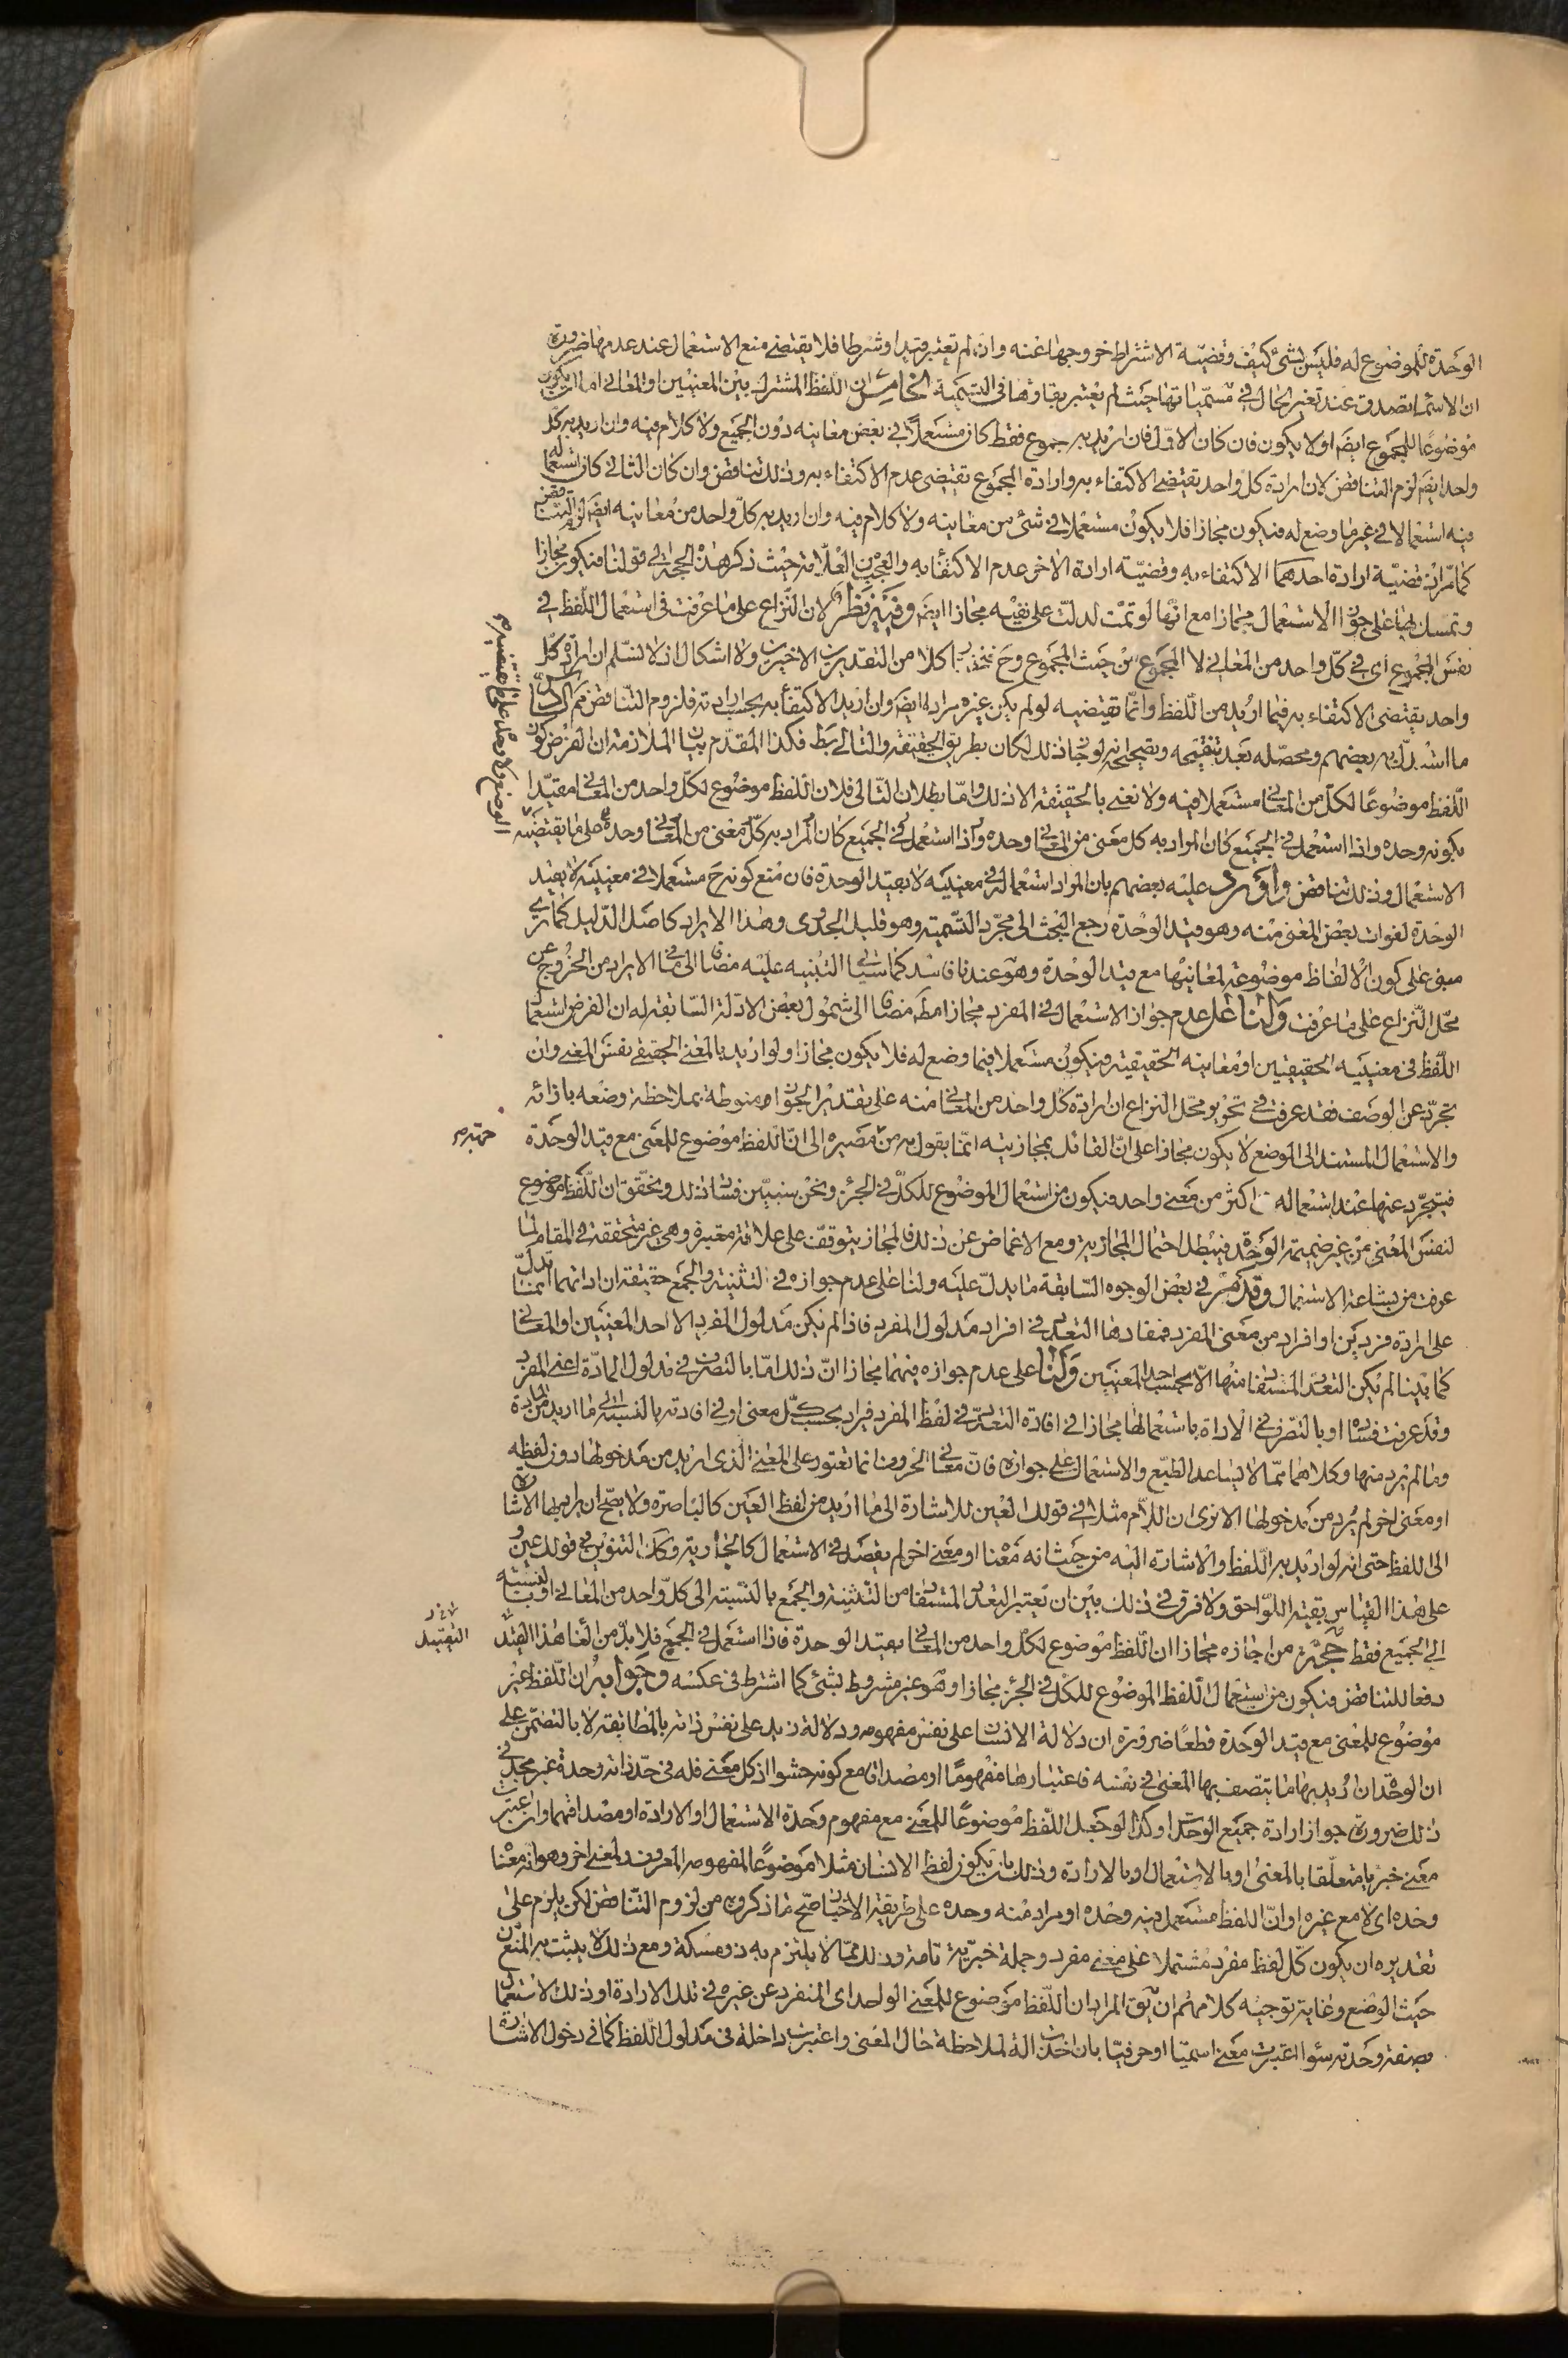 الوحدة للموضوع له فليس بشئ كيف وقضيّة الاشتراط خروجها عنه وان لم تعتبر قيدا وشرطا فلا يقتضى منع الاستعمال عند عدمها ضرورة
ان الاسماء تصدق عند تغير الحال فى مسمّياتها حيث لم يعتبر بقاؤها فى التسمية الخامس ان اللّفظ المشترك بين المعنيين او المعانى اما ان يكون
موضوعا للمجموع ايضا او لا يكون فان كان الاوّل فان اريد به المجموع فقط كان مستعملا فى بعض معانيه دون الجميع ولا كلام فيه وان اريد به كل
واحد ايضا لزم التناقض لان ارادة كل واحد تقتضى الاكتفاء به وارادة المجموع تقتضى عدم الاكتفاء به وذلك تناقض وان كان الثانى كان استعماله
فيه استعمالا فى غير ما وضع له فيكون مجازا فلا يكون مستعملا فى شئ من معانيه ولا كلام فيه وان اريد به كلّ واحد من معانيه ايضا لزم التناقض
كما مرّ لان قضيّة ارادة احدهما الاكتفاء به وقضيّة ارادة الاخر عدم الاكتفاء به والعجب من العلّامة حيث ذكر هذه الحجّة الى قولنا فيكون مجازا
وتمسك بها على جواز الاستعمال مجازا مع انّها لو تمّت لدلّت على نفيه مجازا ايضا وفيه نظر لان النزاع على ما عرفت فى استعمال اللّفظ فى
نفس المجموع اى فى كلّ واحد من المعانى لا المجموع من حيث المجموع وح نختار كلا من التقديرين الاخيرين ولا اشكال اذ لا نسلّم ان ارادة كلّ
واحد يقتضى الاكتفاء به فيما اريد من اللّفظ وانّما تقتضيه لو لم يكن غيره مرادا ايضا وان اريد الاكتفاء به بحسب ارادته فلزوم التناقض مم السادس
ما استدلّ به بعضهم ومحصّله بعد تنقيحه وتصحيحه انه لو جاز ذلك لكان بطريق الحقيقة والتالى بط فكذا المقدّم بيان الملازمة ان الفرض كون
اللّفظ موضوعا لكلّ من المعانى مستعملا فيه ولا نعنى بالحقيقة الا ذلك وامّا بطلان التّالى فلان اللّفظ موضوع لكلّ واحد من المعانى مقيّدا
بكونه وحده واذا استعمل فى الجميع كان المراد به كل معنى من المعانى وحده واذا استعمل فى الجميع كان المراد به كلّ معنى من المعانى وحده على ما يقتضيه
الاستعمال وذلك تناقض واورد عليه بعضهم بان المراد استعماله فى معنييه لا بقيد الوحدة فان منع كونه ح مستعملا فى معنييه لا بقيد
الوحدة لفوات بعض المعنى منه وهو قيد الوحدة رجع البحث الى مجرّد التّسمية وهو قليل الجدوى وهذا الايراد كاصل الدّليل كما ترى
مبنى على كون الالفاظ موضوعة لمعانيها مع قيد الوحدة وهو عندنا فاسد كما سيأتى التّنبيه عليه مضافا الى ما فى الايراد من الخروج عن
محلّ النّزاع على ما عرفت ولنا على عدم جواز الاستعمال فى المفرد مجازا مط مضافا الى شمول بعض الادلّة السّابقة له ان الفرض استعمال
اللّفظ فى معنييه الحقيقيين او معانيه الحقيقيّة فيكون مستعملا فيما وضع له فلا يكون مجازا ولو اريد بالمعنى الحقيقى نفس المعنى وان
تجرّد عن الوصف فقد عرفت فى تحرير محلّ النزاع ان ارادة كل واحد من المعانى منه على تقدير الجواز منوطة بملاحظة وضعه بازائه
والاستعمال المستند الى الوضع لا يكون مجازا على انّ القائل بمجازيته انّما يقول به من مصيره الى انّ اللفظ موضوع للمعنى مع قيد الوحدة
فيتجرّد عنها عند استعماله فى اكثر من معنى واحد فيكون من استعمال الموضوع للكلّ فى الجزء ونحن سنبيّن فساد ذلك ونحقّق ان اللّفظ موضوع
لنفس المعنى من غير ضميمة الوحدة فيبطل احتمال المجازية ومع الاغماض عن ذلك فالمجاز يتوقف على علاقة معتبرة وهى غير متحققة فى المقام لما
عرفت من بشاعة الاستعمال وقد مرّ فى بعض الوجوه السّابقة ما يدلّ عليه ولنا على عدم جوازه فى التثنية والجمع حقيقة ان اداتهما انما تدلّ
على ارادة فردين او افراد من معنى المفرد فمفادها التعدّد فى افراد مدلول المفرد فاذا لم يكن مدلول المفرد الا احد المعنيين او المعانى
كما بيّنا لم يكن التعدّد المستفاد منها الّا بحسب احد المعنيين ولنا على عدم جوازه فيهما مجازا انّ ذلك امّا بالتصرّف فى مدلول المادّة اعنى المفرد
وقد عرفت فساده او بالتصرّف فى الاداة باستعمالها مجازا فى افادة التعدّد فى لفظ المفرد فيراد بحسب كلّ معنى او فى افادته بالنسبة الى ما اريد من المادة
وما لم يرد منها وكلاهما ممّا لا يساعد الطبع والاستعمال على جوازه فانّ معانى الحروف انما تعتور على المعنى الّذى اريد من مدخولها دون لفظه
او معنى اخر لم يرد من مدخولها الا ترى ان اللّام مثلا فى قولك العين للاشارة الى ما اريد من لفظ العين كالباصرة ولا يصحّ ان يراد بها الاشارة
الى اللفظ حتى انه لو اريد به اللّفظ والاشارة اليه من حيث انه معنا او معنى اخر لم يقصد فى الاستعمال كالجارية وكذا التنوين فى قولك عين
على هذا القياس بقيّة اللّواحق ولا فرق فى ذلك بين ان يعتبر التعدّد المستفاد من التثنية والجمع بالنّسبة الى كلّ واحد من المعانى او بالنسبة
الى الجميع فقط حجّة من اجازه مجازا ان اللّفظ موضوع لكلّ واحد من المعانى بقيد الوحدة فاذا استعمل فى الجميع فلا بدّ من الغاء هذا القيد
دفعا للتناقض فيكون من استعمال اللّفظ الموضوع للكلّ فى الجزء مجازا وهو غير مشروط بشئ كما اشترط فى عكسه وجوابه ان اللّفظ غير
موضوع للمعنى مع قيد الوحدة قطعا ضرورة ان دلالة الانسان على نفس مفهومه ودلالة زيد على نفس ذاته بالمطابقة لا بالتضمّن على
ان الوحدة ان اريد بها ما يتصف بها المعنى فى نفسه فاعتبارها مفهوما او مصداقا مع كونه حشوا اذ كل معنى فله فى حدّ ذاته وحدة غير مجد فى
ذلك ضرورة جواز ارادة جميع الوحدات وكذا لو جعل اللّفظ موضوعا للمعنى مع مفهوم وحدة الاستعمال او الارادة او مصداقهما وان اعتبرت
معنى خبريا متعلّقا بالمعنى او بالاستعمال او بالارادة وذلك بان يكون لفظ الانسان مثلا موضوعا لمفهومه المعروف ولمعنى اخر وهو انّه معنا
وحده اى لا مع غيره او انّ اللفظ مستعمل فيه وحده او مراد منه وحده على طريقة الاخبار صحّ ما ذكروه من لزوم التناقض لكن يلزم على
تقديره ان يكون كلّ لفظ مفرد مشتملا على معنى مفرد وجملة خبريّة تامة وذلك ممّا لا يلتزم به ذو مسكة ومع ذلك لا يثبت به المنع من
حيث الوضع وغاية توجيه كلامهم ان يق المراد ان اللّفظ موضوع للمعنى الواحد اى المنفرد عن غيره فى تلك الارادة او ذلك الاستعمال
بصفة وحدته سواء اعتبرت معنى اسميّا او حرفيّا بان اخذت الة لملاحظة حال المعنى واعتبرت داخلة فى مدلول اللّفظ كما فى دخول الاشارة